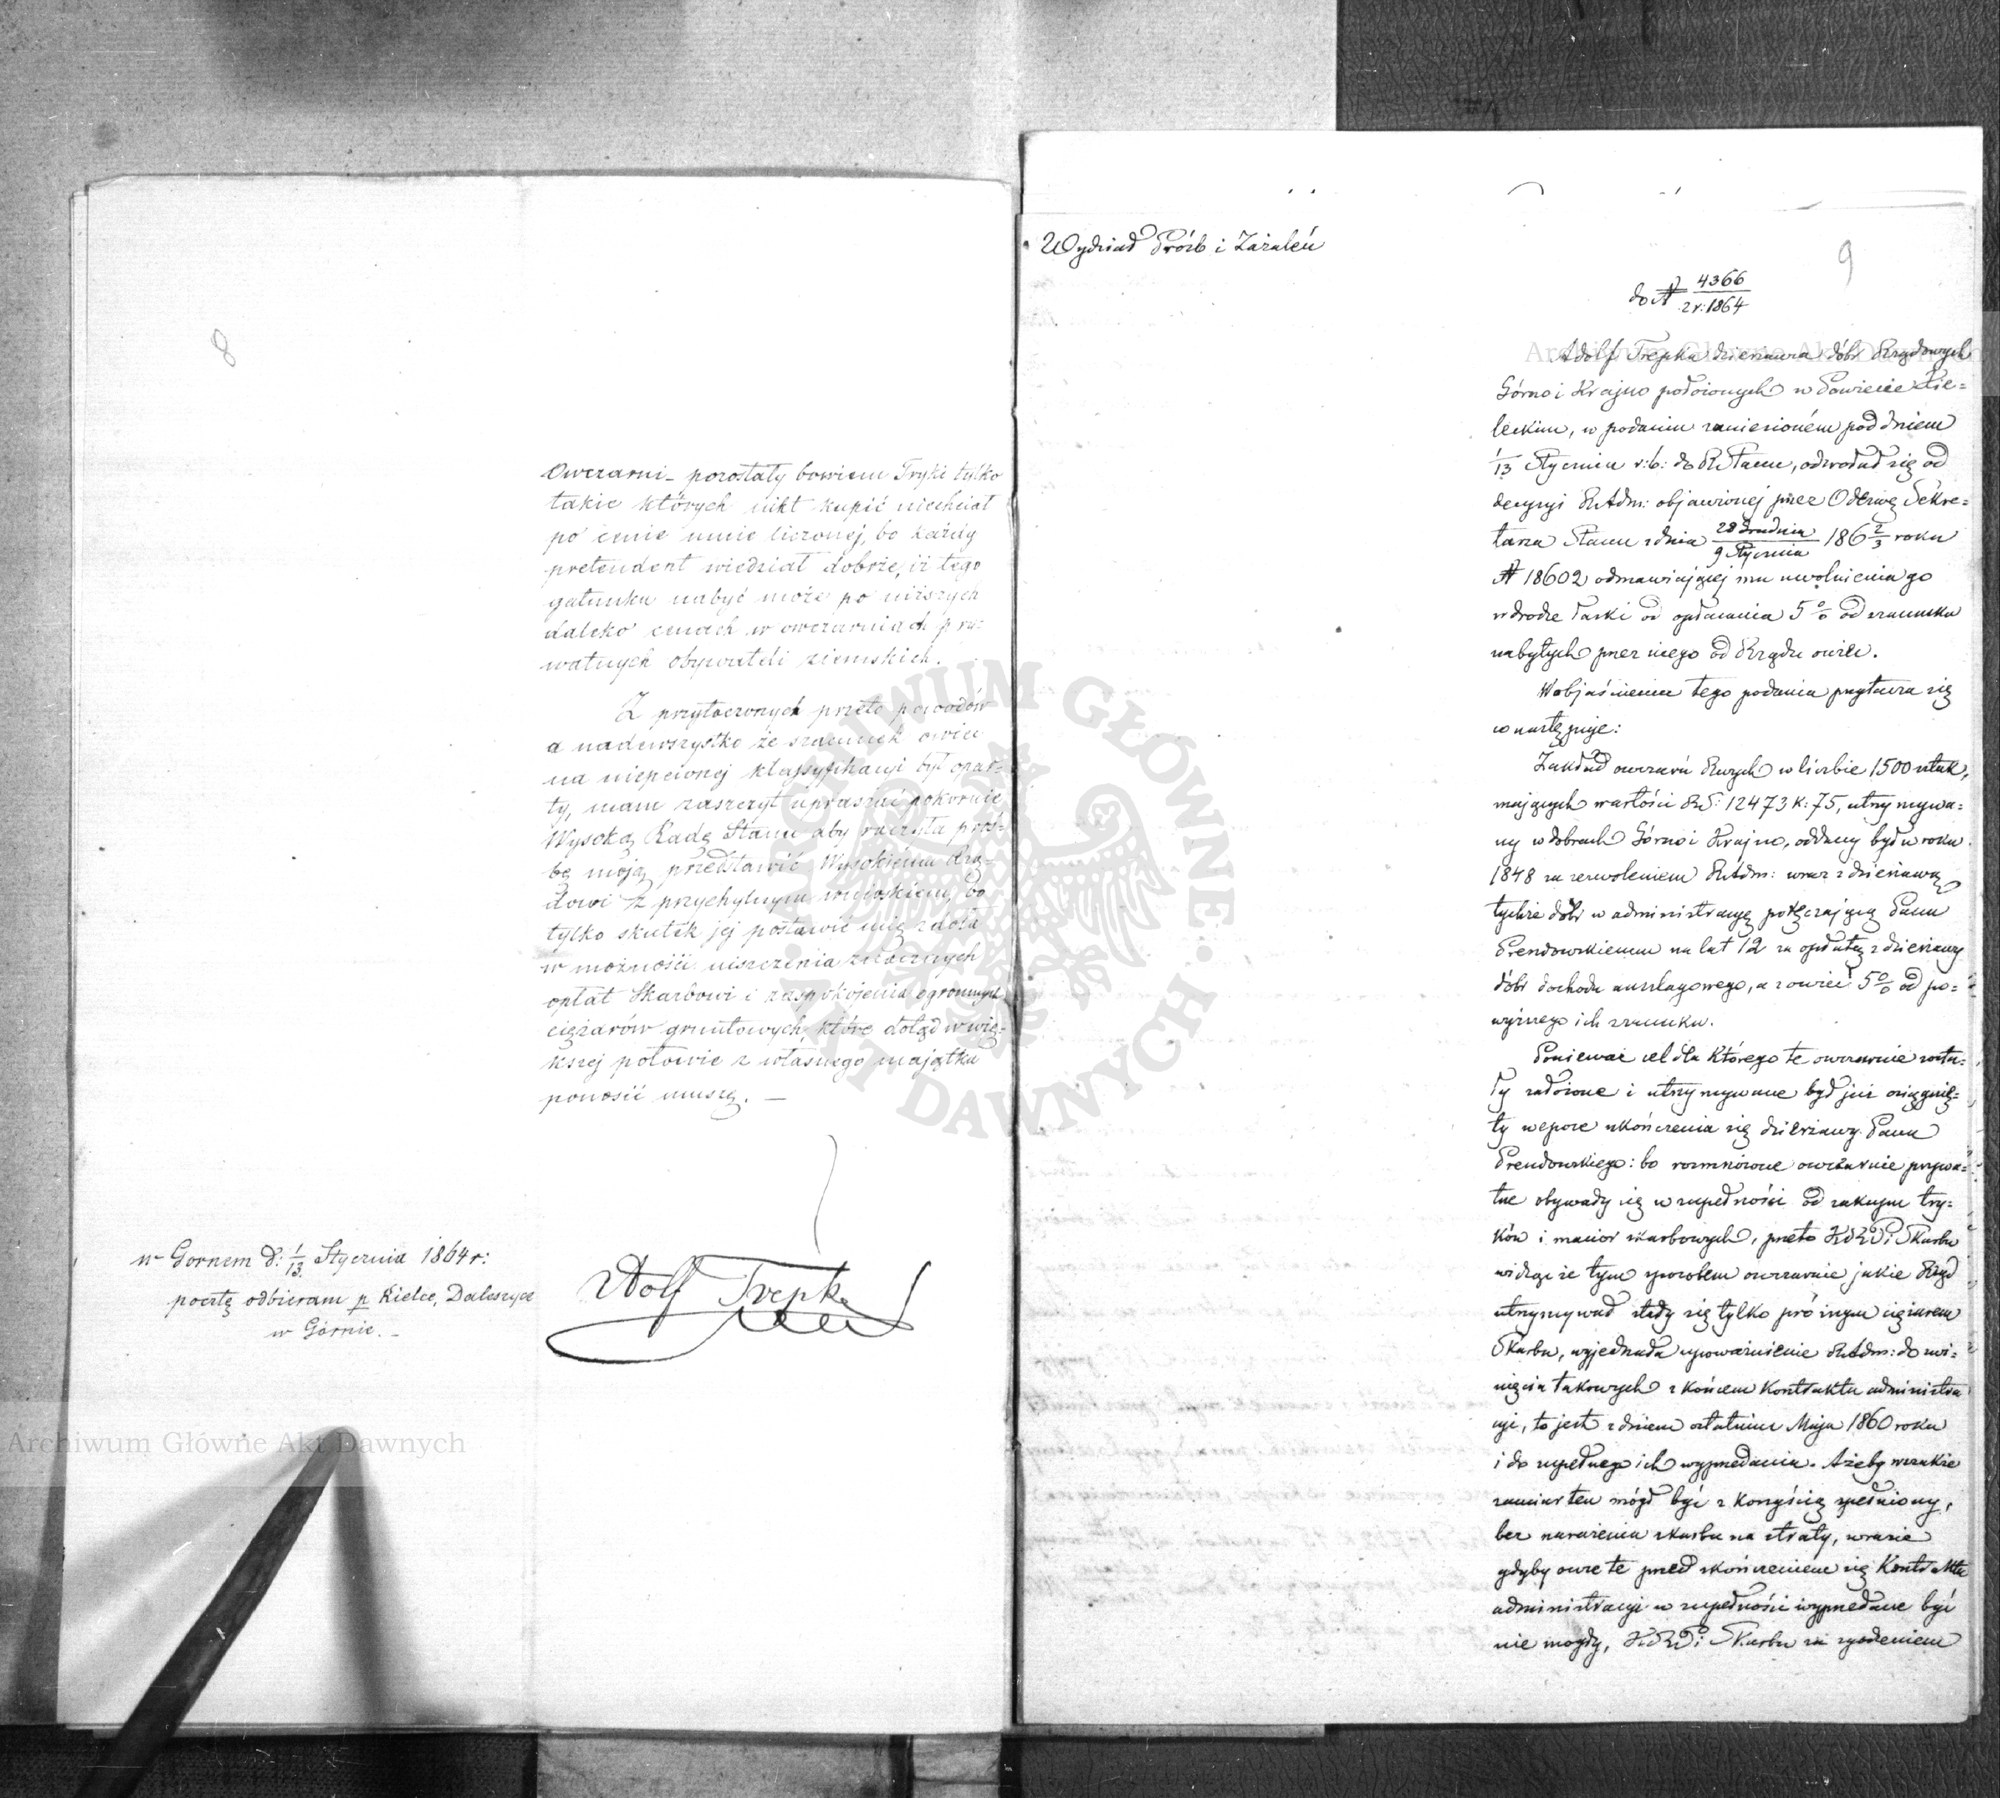 8
Owczarni – pozostały bowiem Tryki tylko
takie których nikt kupić niechciał
po cenie mnie liczonej, bo każdy
pretendent wiedział dobrze, iż tego
gatunku nabyć może po niższych
daleko cenach w owczarniach pry-
watnych obywateli ziemskich.
Z przytoczonych przeto powodów
a nadewszystko że szacunek owiec
na niepewnej klassyfikacyi był opar-
ty, mam zaszczyt upraszać pokornie
Wysoką Radę Stanu aby raczyła proś-
bę moją przedstawić Wysokiemu Rzą-
dowi z przychylnym wnioskiem, bo
tylko skutek jej postawić mię zdoła
w możności uiszczenia znacznych
opłat Skarbowi i zaspokojenia ogromnych
ciężarów gruntowych, które dotąd w wię-
kszej połowie z własnego majątku
ponosić muszę. —
w Gornem d: 1/13 Stycznia 1864 r:
pocztę odbieram p Kielce, Daleszyce
w Górnie. –
Adolf Trepka
Wydział Próśb i Zażaleń
9
do № 4366/z r: 1864
Adolf Trepka dzierżawca dóbr Rządowych
Górno i Krajno położonych w Powiecie Kie=
leckim, w podaniu zaniesioném pod dniem
1/13 Stycznia r: b: do RStanu, odwołał się od
decyzyi RAdm: objawionej przez Odezwę Sekre=
tarza Stanu z dnia 28 Grudnia/9 Stycznia 186 2/3 roku
№ 18602 odmawiającej mu uwolnienia go
w drodze łaski od opłacania 5 % od szacunku
nabytych przez niego od Rządu owiec.
W objaśnieniu tego podania przytacza się
co następuje:
Zakład owczarń Rwych w liczbie 1500 sztuk,
mających wartości RS: 12473 k: 75, utrzymywa=
ny w dobrach Górno i Krajno, oddany był w roku
1848 za zezwoleniem RAdm: wraz z dzierżawą
tychże dóbr w administracyę poręczającą Panu
Prendowskiemu na lat 12 za opłatą z dzierżawy
dóbr dochodu anszlagowego, a z owiec 5 % od po=
wyższego ich szacunku.
Ponieważ cel dla którego te owczarnie zosta=
ły założone i utrzymywane był już osiągnię=
ty w epoce ukończenia się dzierżawy Pana
Prendowskiego: bo rozmnożone owczarnie prywa=
tne obywały się w zupełności od zakupu try=
ków i macior skarbowych, przeto KRP i Skarbu
widząc że tym sposobem owczarnie jakie Rząd
utrzymywał stały się tylko próżnym ciężarem
Skarbu, wyjednała upoważnienie RAdm: do zwi=
nięcia takowych z końcem kontraktu administra
cyi, to jest z dniem ostatnim Maja 1860 roku
i do zupełnego ich wyprzedania. Ażeby wszakże
zamiar ten mógł być z korzyścią spełniony,
bez narażenia skarbu na straty, w razie
gdyby owce te przed skończeniem się Kontraktu
administracyi w zupełności wyprzedane być
nie mogły, KRP i Skarbu za zgodzeniem